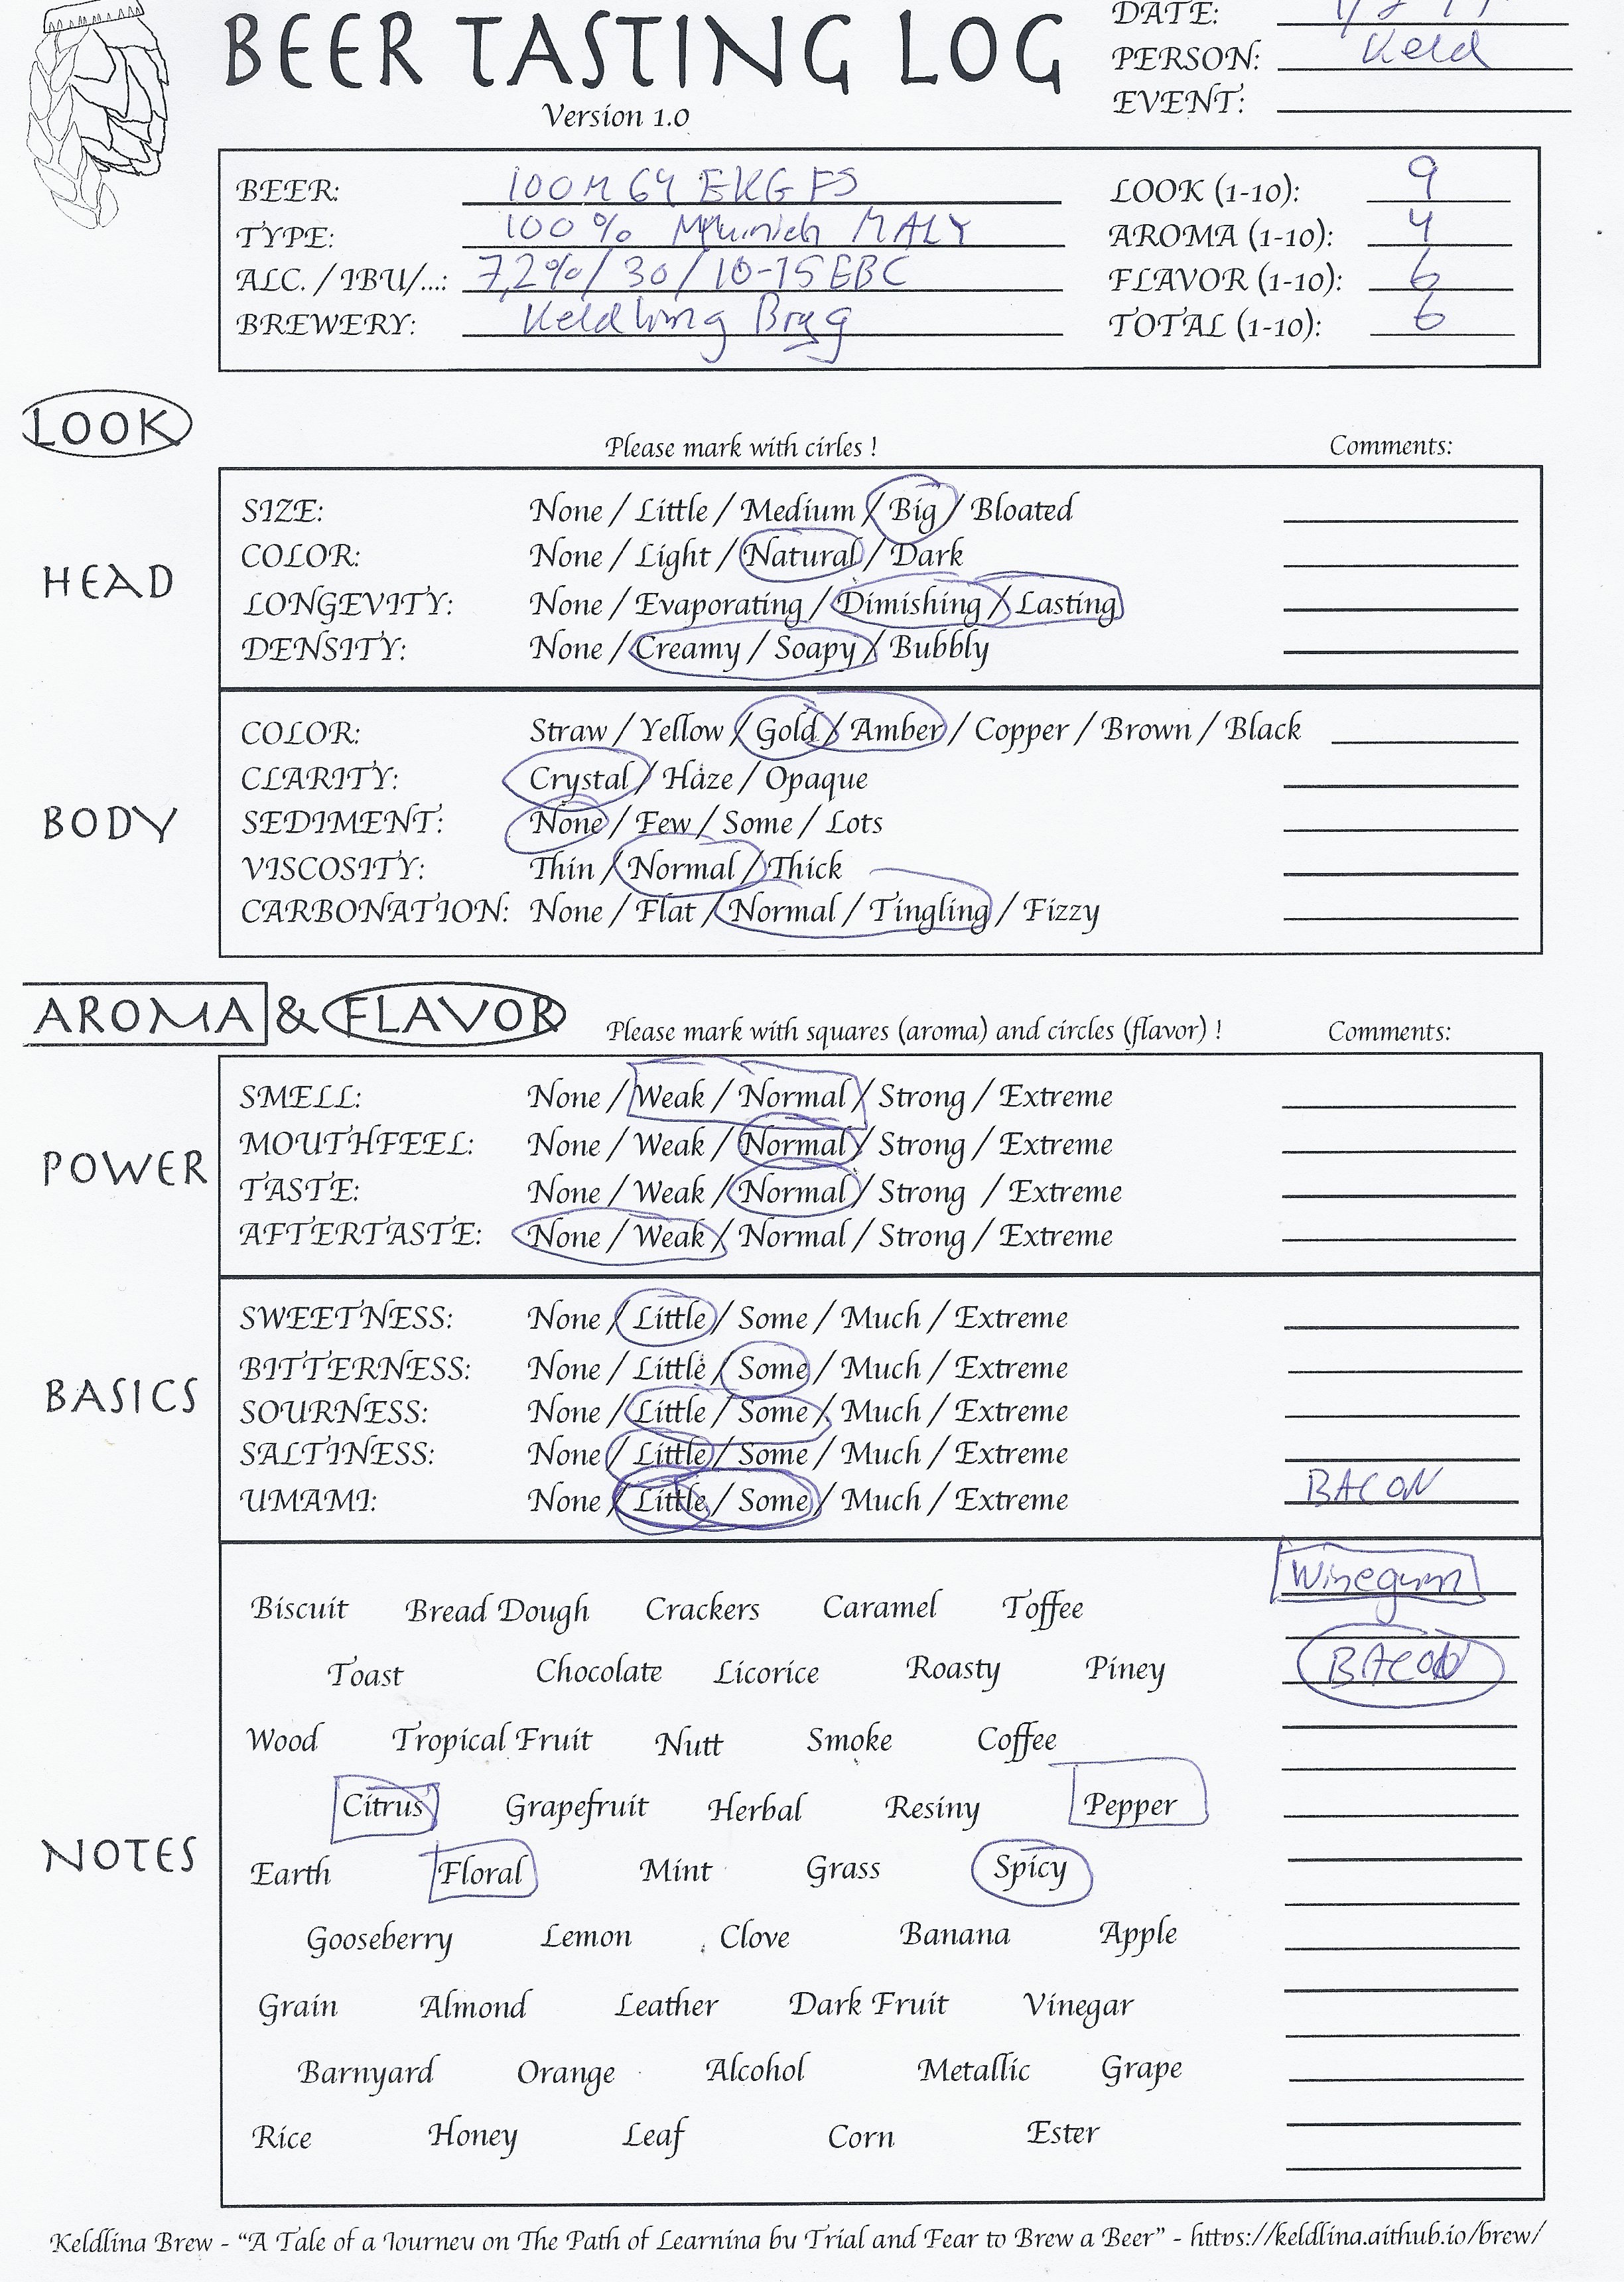 BEER TASTING LOG
Version 1.0
DATE:
PERSON: Keld
EVENT:
BEER: 100M64 EKG FS
TYPE: 100% Munich MALT
ALC. / IBU/...: 7,2% / 30 / 10-15 EBC
BREWERY: Keldling Bryg
LOOK (1-10): 9
AROMA (1-10): 4
FLAVOR (1-10): 6
TOTAL (1-10): 6
LOOK
Please mark with cirles ! Comments:
HEAD
SIZE: None / Little / Medium / Big / Bloated
COLOR: None / Light / Natural / Dark
LONGEVITY: None / Evaporating / Dimishing / Lasting
DENSITY: None / Creamy / Soapy / Bubbly
BODY
COLOR: Straw / Yellow / Gold / Amber / Copper / Brown / Black
CLARITY: Crystal / Haze / Opaque
SEDIMENT: None / Few / Some / Lots
VISCOSITY: Thin / Normal / Thick
CARBONATION: None / Flat / Normal / Tingling / Fizzy
AROMA & FLAVOR
Please mark with squares (aroma) and circles (flavor) ! Comments:
POWER
SMELL: None / Weak / Normal / Strong / Extreme
MOUTHFEEL: None / Weak / Normal / Strong / Extreme
TASTE: None / Weak / Normal / Strong / Extreme
AFTERTASTE: None / Weak / Normal / Strong / Extreme
BASICS
SWEETNESS: None / Little / Some / Much / Extreme
BITTERNESS: None / Little / Some / Much / Extreme
SOURNESS: None / Little / Some / Much / Extreme
SALTINESS: None / Little / Some / Much / Extreme
UMAMI: None / Little / Some / Much / Extreme BACON
NOTES
Winegum
Biscuit Bread Dough Crackers Caramel Toffee
BACON
Toast Chocolate Licorice Roasty Piney
Wood Tropical Fruit Nutt Smoke Coffee
Citrus Grapefruit Herbal Resiny Pepper
Earth Floral Mint Grass Spicy
Gooseberry Lemon Clove Banana Apple
Grain Almond Leather Dark Fruit Vinegar
Barnyard Orange Alcohol Metallic Grape
Rice Honey Leaf Corn Ester
Keldling Brew - "A Tale of a Journey on The Path of Learning by Trial and Fear to Brew a Beer" - https://keldling.github.io/brew/